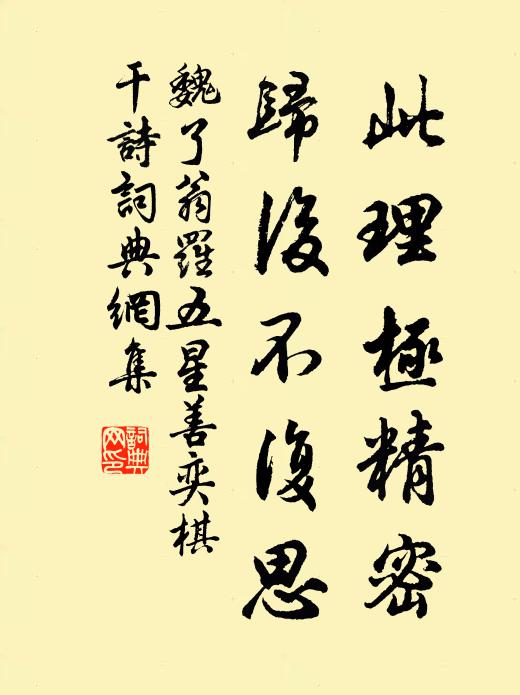 此理極精密
歸後不復思
魏了翁羅五星善奕棋
于詩詞典網集
詞典
网印